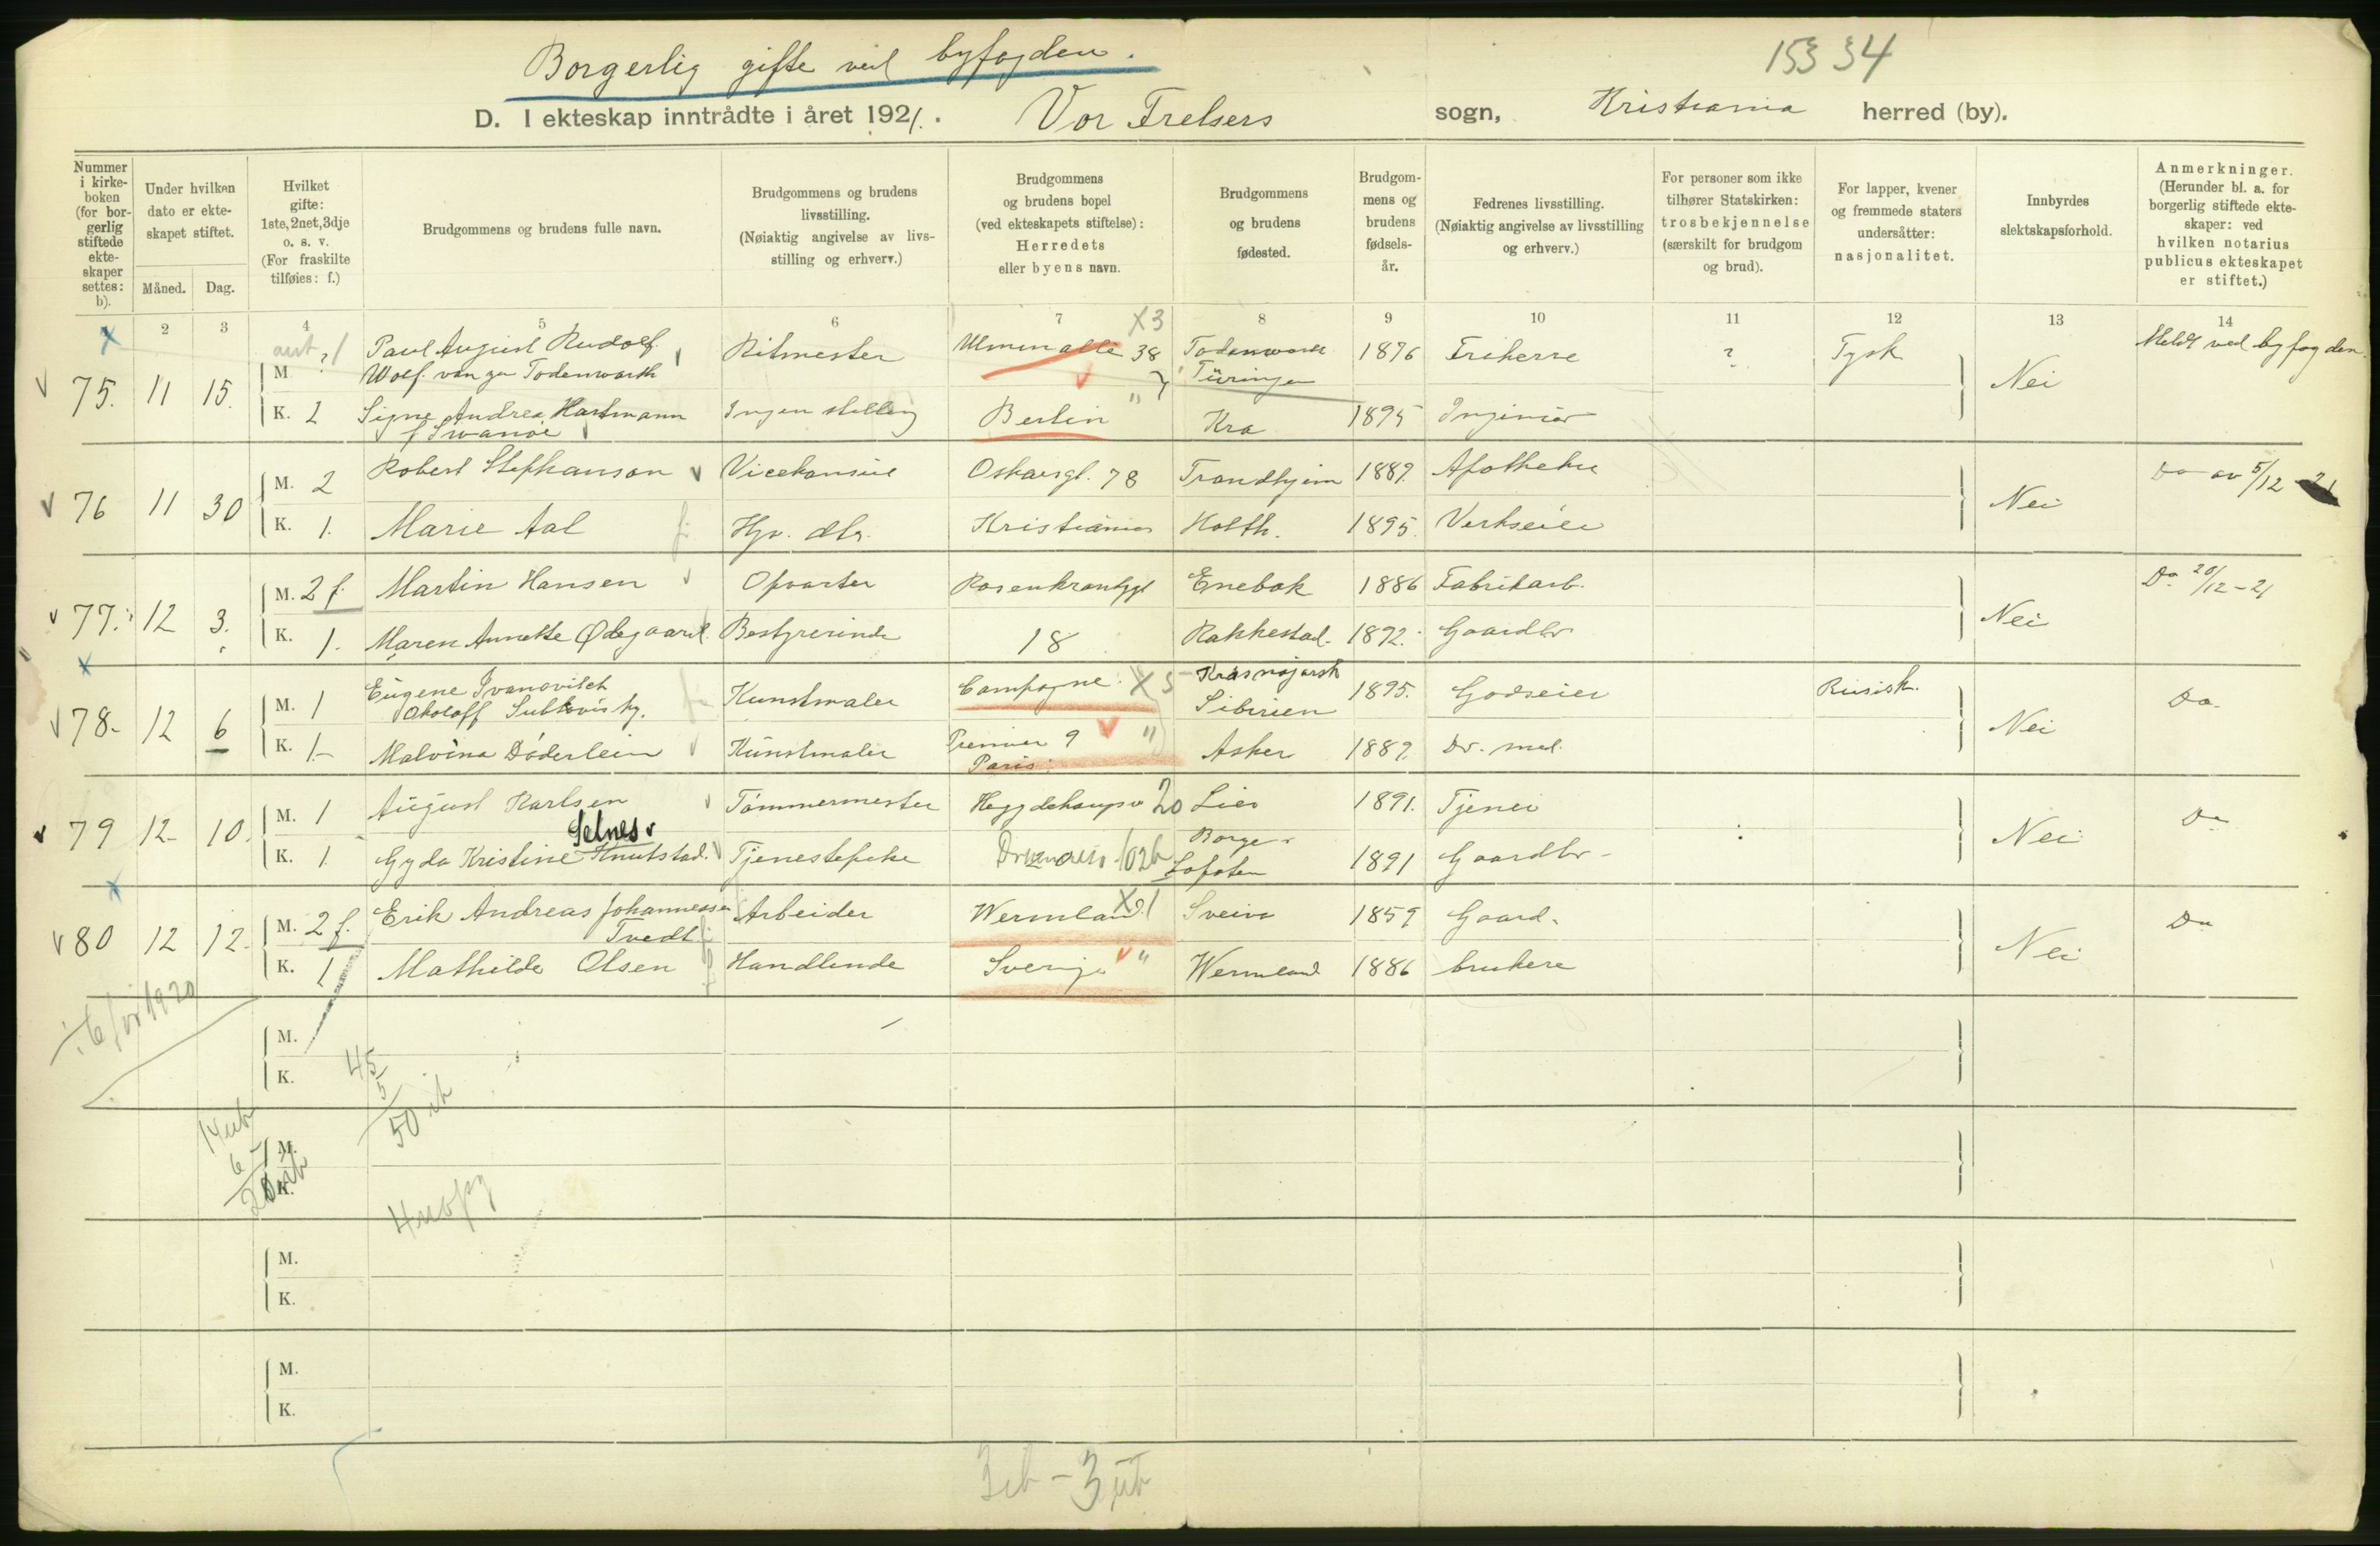 Borgerlig gifte ved byfogden.
15334
D. I ekteskap inntrådte i året 1921. Vor Frelsers sogn, Kristiania herred (by).
Nummer i kirke-boken (for bor-gerlig stiftede ekte-skaper settes: b).
Under hvilken dato er ekte-skapet stiftet.
Måned. Dag.
Hvilket gifte: 1ste, 2net, 3dje o. s. v. (For fraskilte tilføies: f.)
Brudgommens og brudens fulle navn.
Brudgommens og brudens livsstilling. (Nøiaktig angivelse av livs-stilling og erhverv.)
Brudgommens og brudens bopel (ved ekteskapets stiftelse): Herredets eller byens navn.
Brudgommens og brudens fødested.
Brudgom-mens og brudens fødsels-år.
Fedrenes livsstilling. (Nøiaktig angivelse av livsstilling og erhverv.)
For personer som ikke tilhører Statskirken: trosbekjennelse (særskilt for brudgom og brud).
For lapper, kvener og fremmede staters undersåtter: nasjonalitet.
Innbyrdes slektskapsforhold.
Anmerkninger. (Herunder bl. a. for borgerlig stiftede ekte-skaper: ved hvilken notarius publicus ekteskapet er stiftet.)
2 3 4 5 6 7 8 9 10 11 12 13 14
75. 11 15.
M. ? 1 Paul August Rudolf Wolf. van zu Todenwarth Ritmester Ulmenallé 38 X3 Todenwarth Türingen 1876 Friherre ? Tysk Nei Meldt ved byfogden
K. 2 Signe Andrea Hartmann f Swanøe Ingen stilling Berlin Kra 1895 Ingeniør
76 11 30
M. 2 Robert Stephanson Vicekonsul Oskarsgt. 78 Trondhjem 1889. Apotheker Nei Do av 5/12 21
K. 1. Marie Aal Hjv. dtr. Kristiania Holth. 1895. Verkseier
77. 12 3.
M. 2 f. Martin Hansen Opvarter Rosenkrantzgt Enebak 1886 Fabrikarb. Nei Do 20/12-21
K. 1. Maren Annette Ødegaard. Bestyrerinde 18 Rakkestad. 1892. Gaardbr
78- 12 6
M. 1 Eugene Ivanovitch Okoloff Kunstmaler Campagne X5 Krasnojarsk Sibirien 1895. Godseier Rusisk. Nei Do.
K. 1- Malvina Döderlein Kunstmaler Premier 9 Paris Asker 1889. Dr. med.
79 12- 10.
M. 1 August Karlsen Tømmermester Heggdehaugsv 20 Lier 1891. Tjener Nei Do
K. 1. Gyda Kristine Knutstad. Selnes Tjenestepike Drammensv 102b Borge Lofoten 1891 Gaardbr-
80 12 12-
M. 2 f. Erik Andreas Johannessen Tvedt Arbeider Wermland X1 Sveio 1859 Gaard- Nei Do
K. 1 Mathilde Olsen Handlende Sverige Wermland 1886 brukere
M.
K.
45
5
50 ib
M.
K.
14 ub
6
20 ub
M.
K.
M.
K.
3 ib - 3 ub